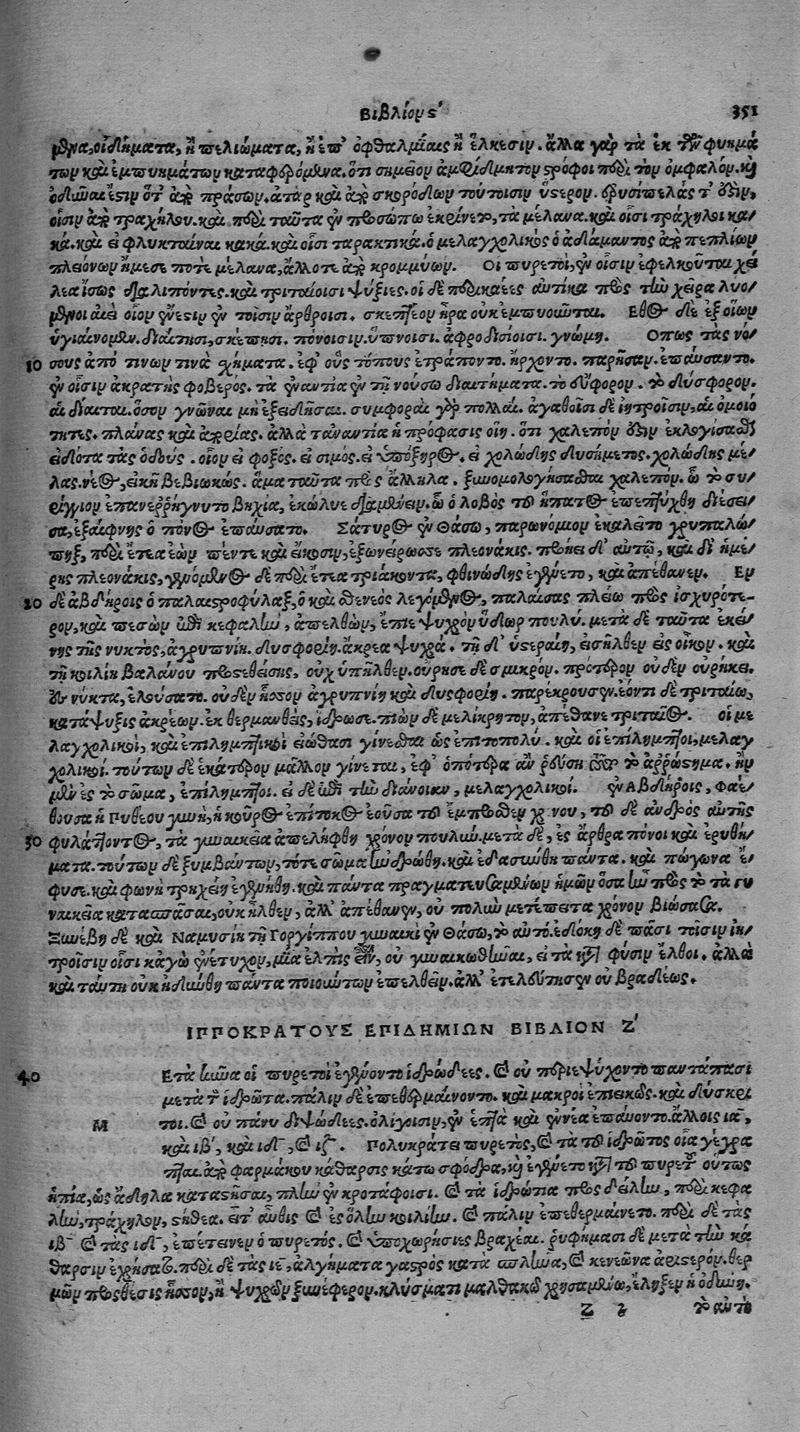 Βιβλίου ς′ 351
μενα, οἰδήματα, ἢ πελιώματα, ἢ ἐπ' ὀφθαλμίαις ἢ ἕλκεσιν. ἀλλὰ γὰρ τὰ ἐκ τῶν φυημά
των καὶ ἐμπυημάτων καταφερόμενα. ὅτι σημεῖον στρόφοι περὶ τὸν ὀμφαλόν. καὶ
ὀδύναι εἰσὶν ὅτ' ἀπὸ πράσων, ἀτὰρ καὶ ἀπὸ σκορόδων τούτοισιν ὕστερον. ἐρυσίπελας τ' ἔξω,
οἷσιν ἀπὸ τραχήλου. καὶ περὶ ταῦτα ἐν προσώπω ἐκρίνετο, τὰ μέλανα. καὶ οἷσι τράχηλοι κα/
κά. καὶ εἰ φλυκταίναι κακά. καὶ οἷσι ταρακτικά. ὁ μελαγχολικὸς ὁ ἀδάμαντος ἀπὸ πεπλίων
πλειόνων ἤμεσέ ποτε μέλανα, ἄλλοτε ἀπὸ κρομμύων. Οἱ πυρετοὶ, ἐν οἷσιν ἐφελκοῦται χεί
λεα ἴσως διαλιπόντες. καὶ τριταίοισι ψύξιες. οἱ δὲ περικαέες αὐτίκα πρὸς τὴν χεῖρα λυό/
μενοι αἰεὶ οἷον ἔνεσιν ἐν τοῖσιν ἄρθροισι. σκεπτέον ἦρα οὐκ ἐμπυοῦνται. Εθος δὲ ἐξ οἵων
ὑγιαίνομεν. διαίτησι, σκέπησι. πόνοισιν. ὕπνοισι. ἀφροδισίοισι. γνώμη. Οπως τὰς νό/
10 σους ἀπό τινων τινὰ σχήματα. ἐφ' οὓς τόπους ἐτράποντο. ἤρχοντο. παρῆσαν. ἐπαύσαντο.
ἐν οἷσιν ἀκρατὴς φοβερός. τὰ ἐναντία ἐν τῆ νούσω διαιτήματα. τὸ εὔφορον. τὸ δύσφορον.
αἱ δίαιται. ὅσον γνῶναι μὴ ἐξειδῆσαι. συμφοραὶ γὰρ πολλαί. ἀγαθοῖσι δὲ ἰητροῖσιν, αἱ ὁμοιό
τητες. πλάνας καὶ ἀπορίας. ἀλλὰ τἀναντία ἡ πρόφασις οἵη. ὅτι χαλεπὸν ἔξω ἐκλογίσασθαι
εἰδότα τὰς ὁδούς. οἷον εἰ φοξός. εἰ σιμός. εἰ ὑπόξηρος. εἰ χολώδης δυσήμετος. χολώδης μέ/
λας. νέος, εἰκῆ βεβιωκώς. ἅμα ταῦτα πρὸς ἄλληλα. ξυνομολογήσασθαι χαλεπόν. ᾧ τὸ συ/
ρίγγιον ἐπανερρήγνυτο βηχία, ἐκώλυε διαμένειν. ᾧ ὁ λοβὸς τοῦ ἥπατος ἐπεπτύχθη διέσει/
σα, ἐξαίφνης ὁ πόνος ἐπαύσατο. Σάτυρος ἐν Θάσω, παρωνύμιον ἐκαλεῖτο γρυπαλώ/
πηξ, περὶ ἔτεα ἐὼν πέντε καὶ εἴκοσιν, ἐξωνείρωσσε πλεονάκις. προῄει δ' αὐτῷ, καὶ δι' ἡμέ/
ρης πλεονάκις, γενόμενος δὲ περὶ ἔτεα τριάκοντα, φθινώδης ἐγένετο, καὶ ἀπέθανεν. Εν
20 δὲ ἀβδήροις ὁ παλαιστροφύλαξ, ὁ καὶ σθένεος λεγόμενος, παλαίσας πλείω πρὸς ἰσχυρότε/
ρον, καὶ πεσὼν ἐπὶ κεφαλὴν, ἀπελθὼν, ἔπιε ψυχρὸν ὕδωρ πουλύ. μετὰ δὲ ταῦτα ἐκεί/
νης τῆς νυκτὸς, ἀγρυπνίη. δυσφορίη. ἄκρεα ψυχρά. τῆ δ' ὑστεραίη, εἰσῆλθεν εἰς οἶκον. καὶ
τῆ κοιλίη βαλάνου προστεθείσης, οὐχ ὑπῆλθεν. οὔρησε δὲ σμικρόν. πρότερον οὐδὲν οὐρήκει.
ἐς νύκτα, ἐλούσατο. οὐδὲν ἧσσον ἀγρυπνίη καὶ δυσφορίη. παρέκρουσεν. ἐόντι δὲ τριταίω,
κατάψυξις ἀκρέων. ἐκθερμανθεὶς, ἵδρωσε. πιὼν δὲ μελίκρητον, ἀπέθανε τριταῖος. οἱ με
λαγχολικοὶ, καὶ ἐπιληπτικοὶ εἰώθασι γίνεσθαι ὡς ἐπιτοπολύ. καὶ οἱ ἐπίληπτοι, μελαγ
χολικοί. τούτων δὲ ἑκάτερον μᾶλλον γίνεται, ἐφ' ὁπότερα ἂν ῥεύση τὸ ἀρρώστημα. ἢν
μὲν ἐς τὸ σῶμα, ἐπίληπτοι. εἰ δὲ ἐπὶ τὴν διάνοιαν, μελαγχολικοί. ἐν Αβδήροις, Φαέ/
θουσα ἡ Πυθέου γυνὴ, ἡ κοῦρος ἐπίτοκος ἐοῦσα τοῦ ἔμπροσθεν χρόνου, τοῦ δὲ ἀνδρὸς αὐτῆς
30 φυγόντος, τὰ γυναικεῖα ἀπελήφθη χρόνον πουλύν. μετὰ δὲ, ἐς ἄρθρα πόνοι καὶ ἐρυθή/
ματα. τούτων δὲ ξυμβάντων, τότε σῶμα ἠνδρώθη. καὶ ἐδασύνθη πάντα. καὶ πώγωνα ἔ/
φυσε. καὶ φωνὴ τρηχείη ἐγενήθη. καὶ πάντα πραγματευσαμένων ἡμῶν ὅσα ἦν πρὸς τὸ τὰ γυ
ναικεῖα κατασπάσαι, οὐκ ἦλθεν, ἀλλ' ἀπέθανεν, οὐ πολὺν μετέπειτα χρόνον βιώσασα.
Ξυνέβη δὲ καὶ Ναμυσίη τῆ Γοργίππου γυναικὶ ἐν Θάσω, τὸ αὐτό. ἐδόκει δὲ πᾶσι τοῖσιν ἰη/
τροῖσιν οἷσι κἀγὼ ἐνέτυχον, μία ἐλπὶς εἶναι, τοῦ γυναικωθῆναι, εἰ τὰ κατὰ φύσιν ἔλθοι. ἀλλὰ
καὶ ταύτη οὐκ ἠδυνήθη πάντα ποιούντων ἐπελθεῖν. ἀλλ' ἐτελεύτησεν οὐ βραδέως.
ΙΠΠΟΚΡΑΤΟΥΣ ΕΠΙΔΗΜΙΩΝ ΒΙΒΛΙΟΝ Ζ′
40 Ετὰ κύνα οἱ πυρετοὶ ἐγένοντο ἱδρώδεες. καὶ οὐ περιεψύχοντο παντάπασι
μετὰ τὸν ἱδρῶτα. πάλιν δὲ ἐπεθερμαίνοντο. καὶ μακροὶ ἐπιεικῶς. καὶ δύσκρι
Μ τοι. καὶ οὐ πάνυ διψώδεες. ὀλίγοισιν, ἐν ἑπτὰ καὶ ἐννέα ἐπαύοντο. ἄλλοις ια′,
καὶ ιβ′, καὶ ιδ′, καὶ ιζ′. Πολυκράτει πυρετὸς, καὶ τὰ τοῦ ἱδρῶτος οἷα γέγρα
πται. ἀπὸ φαρμάκου κάθαρσις κάτω σφόδρα, καὶ ἐγένετο κατὰ τοῦ πυρετοῦ οὕτως
ἤπια, ὡς ἄδηλα κατασῆσαι, πλὴν ἐν κροτάφοισι. καὶ τὰ ἱδρώτια πρὸς δείλην, περὶ κεφα
λὴν, τράχηλον, στήθεα. εἶτ' αὖθις καὶ ἐς ὅλην κοιλίην. καὶ πάλιν ἐπεθερμαίνετο. περὶ δὲ τὰς
ιβ′ καὶ τὰς ιδ′, ἐπέτεινεν ὁ πυρετός. καὶ ὑποχωρήσιες βραχέαι. ῥυφήμασι δὲ μετὰ τὴν κά
θαρσιν ἐχρήσατο. περὶ δὲ τὰς ιε′, ἀλγήματα γαστρὸς κατὰ σπλῆνα, καὶ κενεῶνα ἀριστερόν. θερ
μῶν προσθέσις ἧσσον, ἢ ψυχρῶν ξυνέφερον. κλύσματι μαλθακῶ χρησαμένω, ἔληξεν ἡ ὀδύνη.
Ζ τὸ αὐτὸ